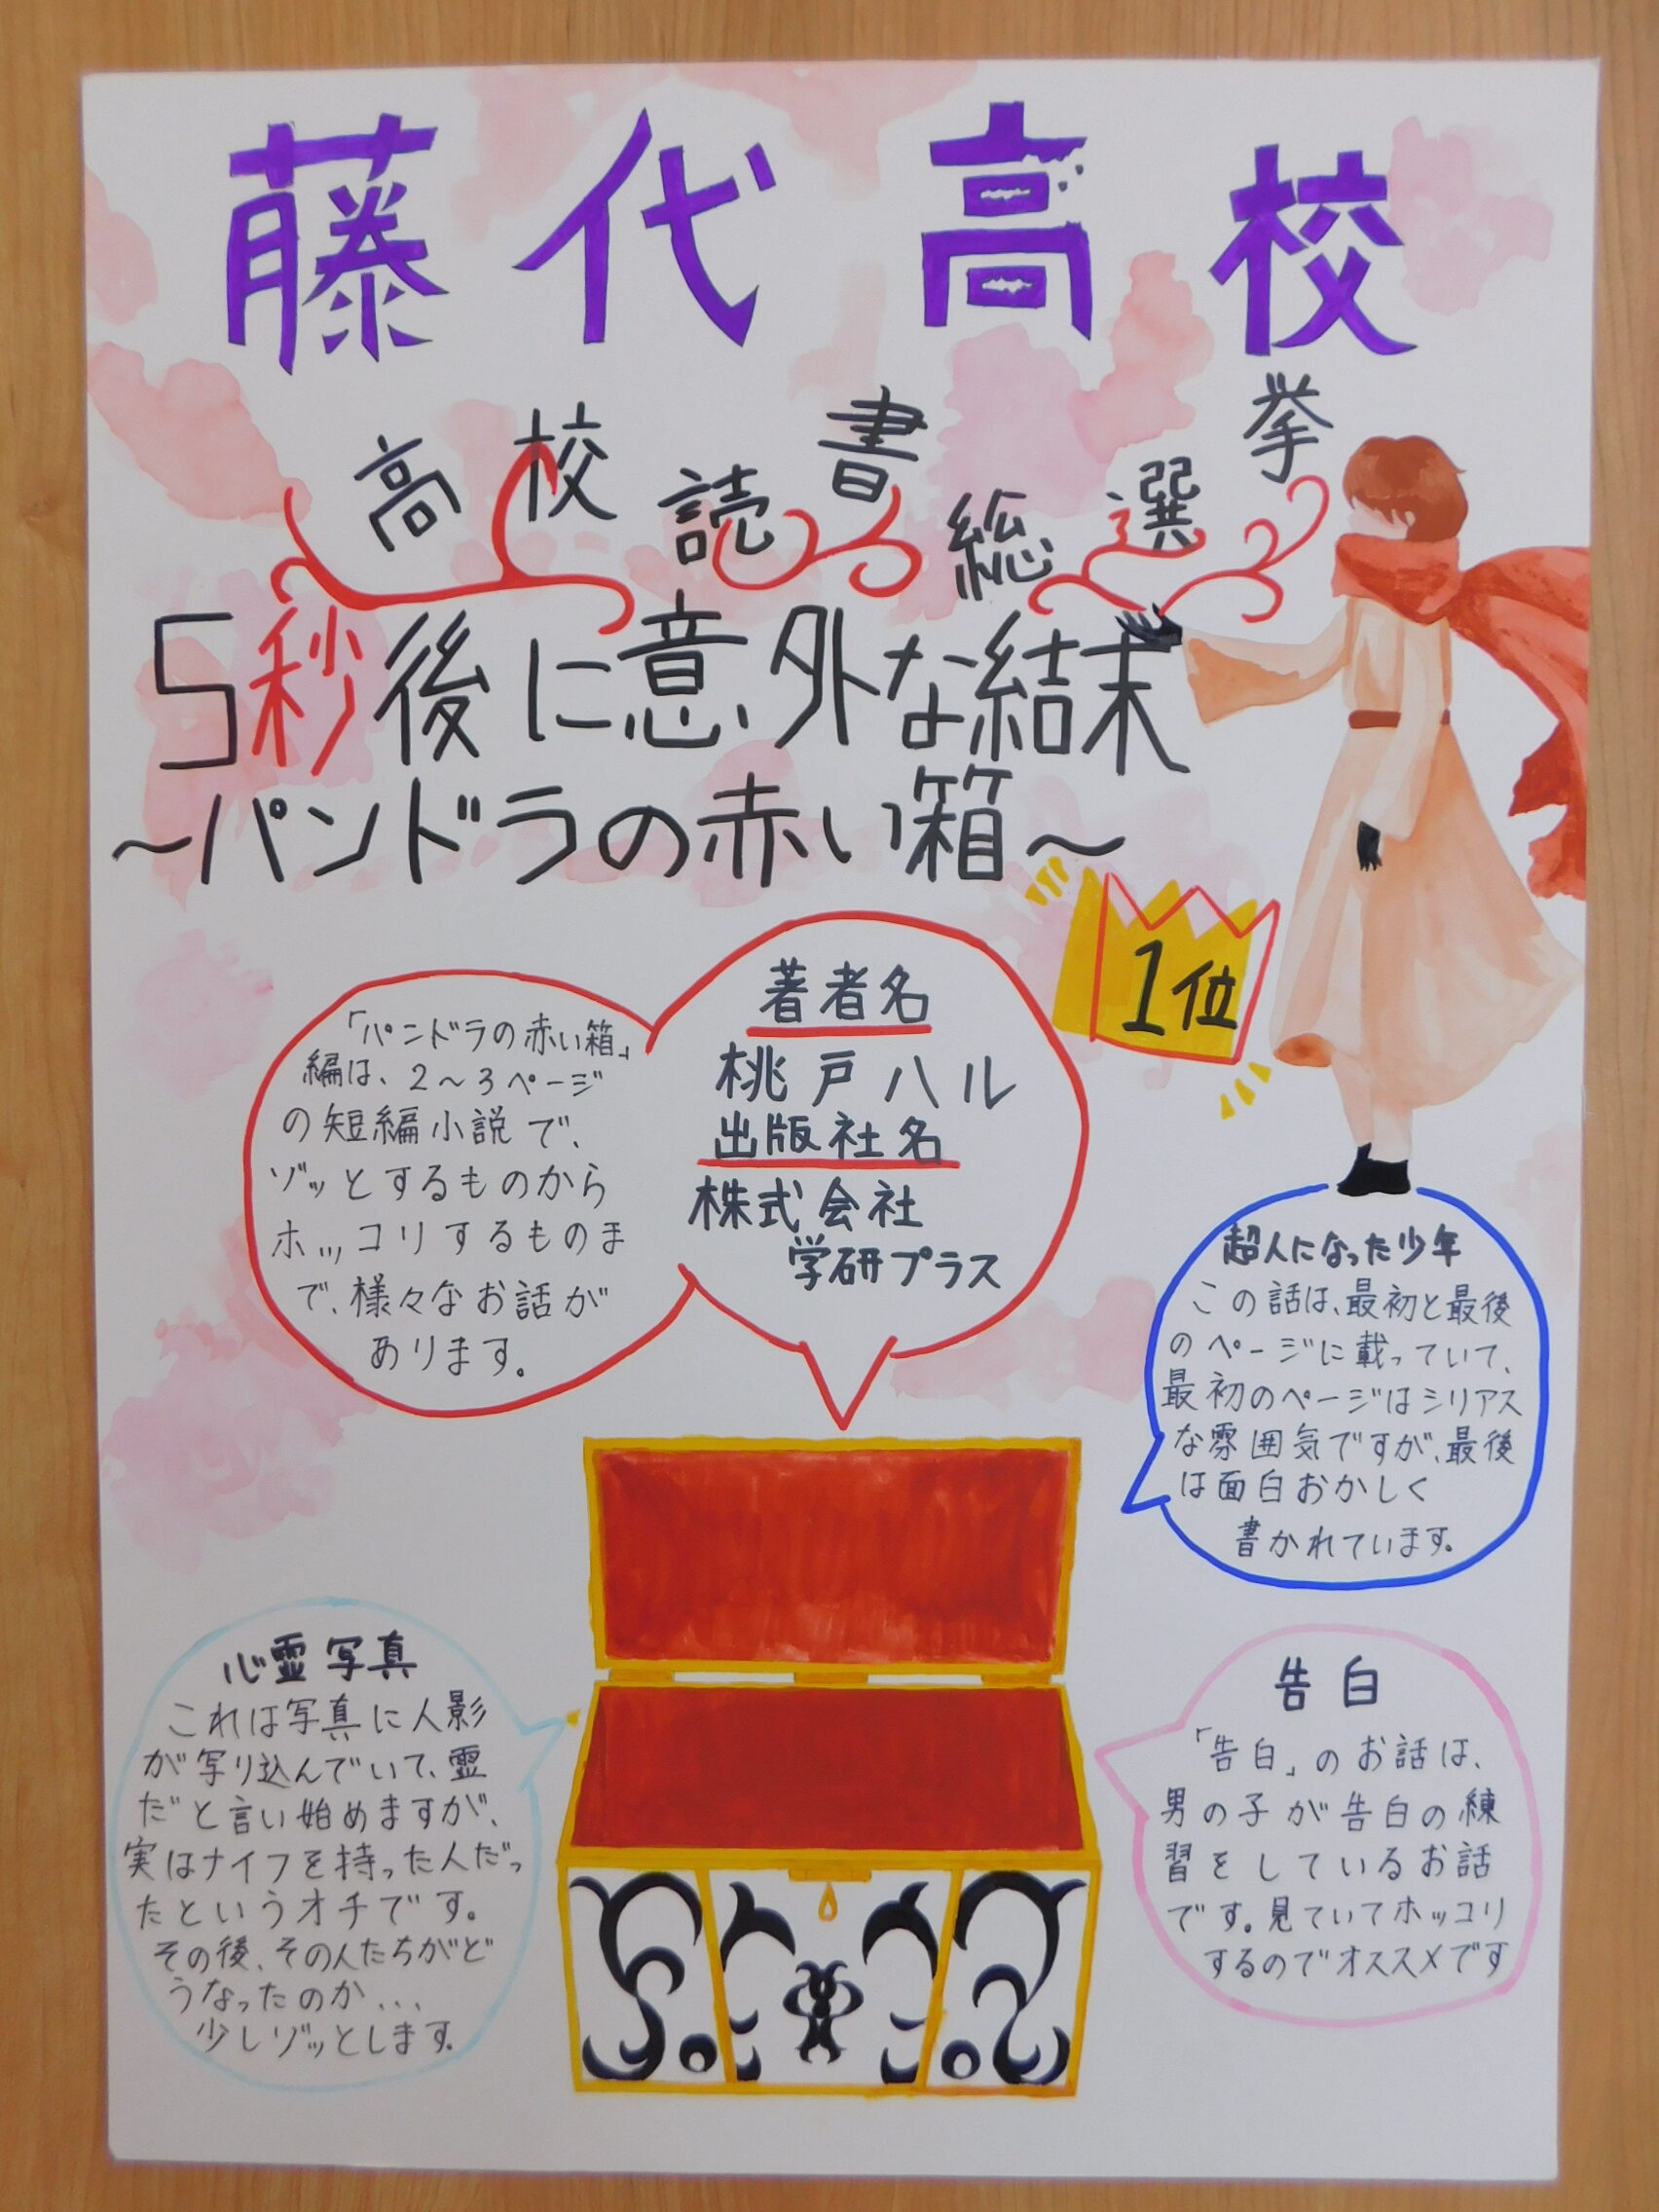 藤代高校
高校読書総選挙
5秒後に意外な結末
～パンドラの赤い箱～
1位
「パンドラの赤い箱」
編は、2～3ページ
の短編小説で、
ゾッとするものから
ホッコリするものま
で、様々なお話が
あります。
著者名
桃戸ハル
出版社名
株式会社
学研プラス
超人になった少年
この話は、最初と最後
のページに載っていて、
最初のページはシリアス
な雰囲気ですが、最後
は面白おかしく
書かれています。
心霊写真
これは写真に人影
が写り込んでいて、霊
だと言い始めますが、
実はナイフを持った人だっ
たというオチです。
その後、その人たちがど
うなったのか...
少しゾッとします。
告白
「告白」のお話は、
男の子が告白の練
習をしているお話
です。見ていてホッコリ
するのでオススメです